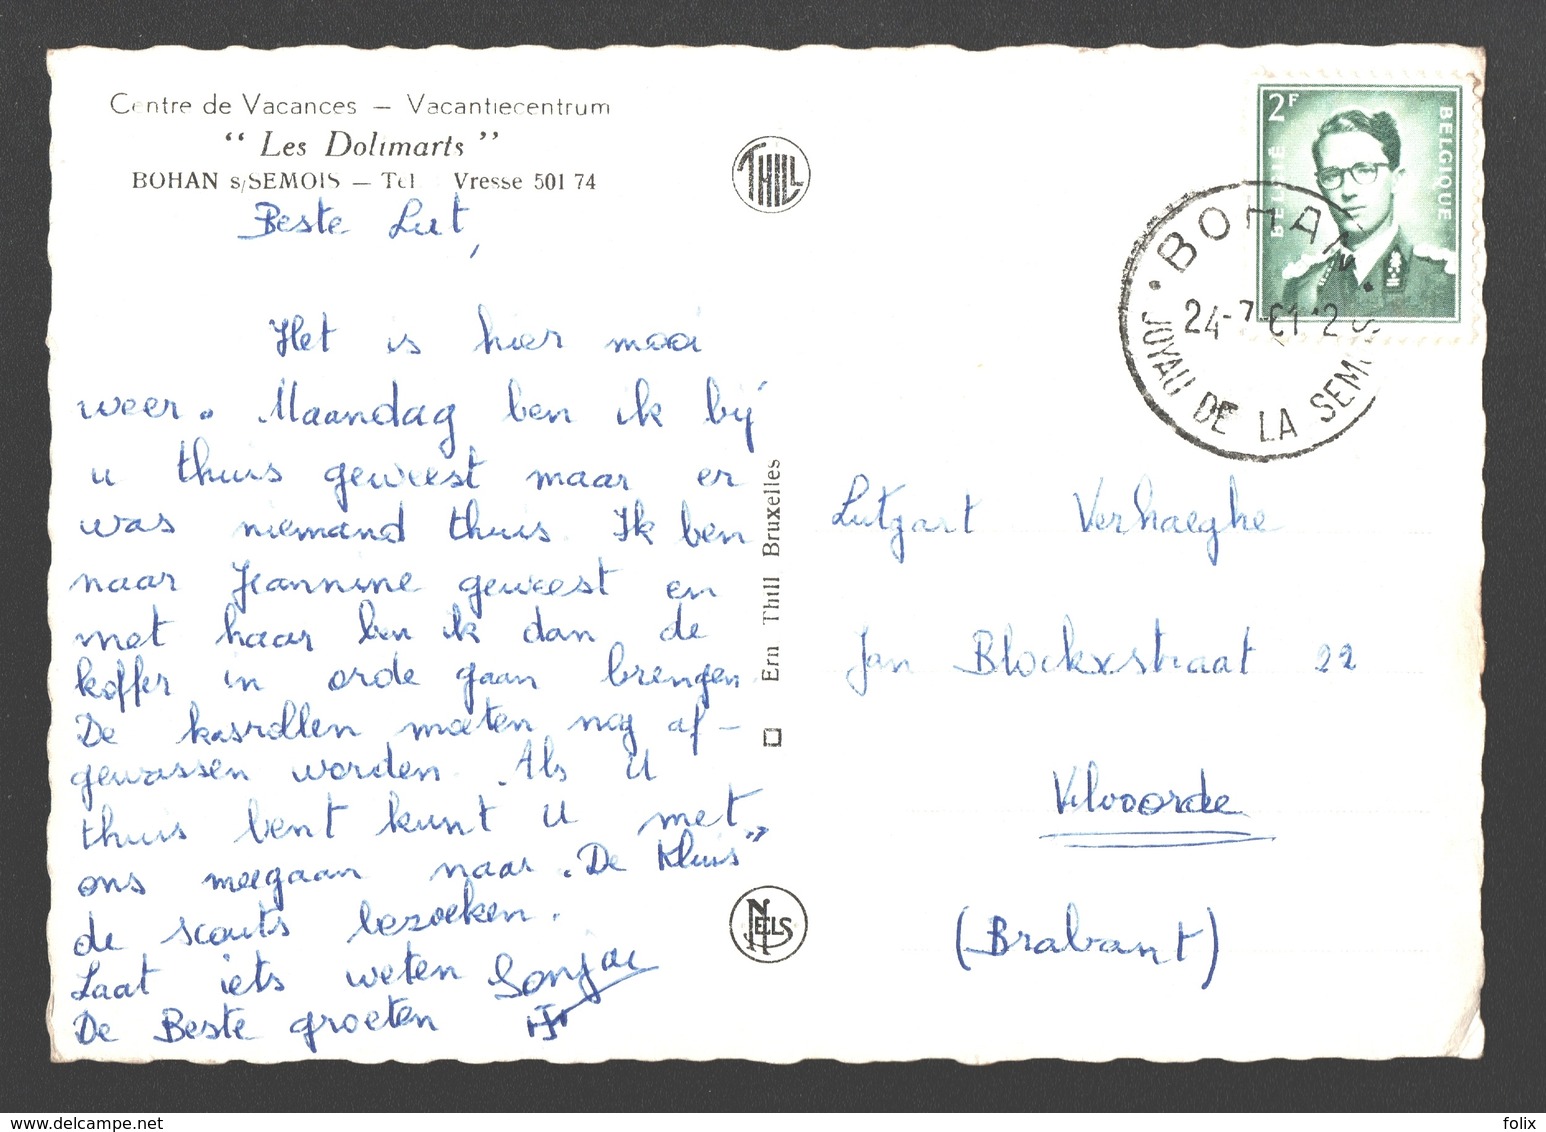 Centre de Vacances — Vacantiecentrum
“ Les Dolimarts ”
BOHAN s/SEMOIS — Tel. Vresse 501 74
Beste Lut,
Het is hier mooi
weer. Maandag ben ik bij
u thuis geweest maar er
was niemand thuis. Ik ben
naar Jeannine geweest en
met haar ben ik dan de
koffer in orde gaan brengen.
De kasrollen moeten nog af-
gewassen worden. Als U
thuis bent kunt U met
ons meegaan naar „De Kluis”
de scouts bezoeken.
Laat iets weten
De Beste groeten
Sonja
THILL
Ern Thill Bruxelles
NELS
2F
BELGIË
BELGIQUE
BOHAN
24-7-61 12
JOYAU DE LA SEMOIS
Lutgart Verhaeghe
Jan Blockxstraat 22
Vilvoorde
(Brabant)
felix
delcampe.net